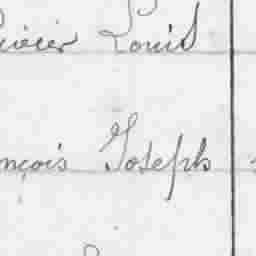 Louis
nçois Joseph